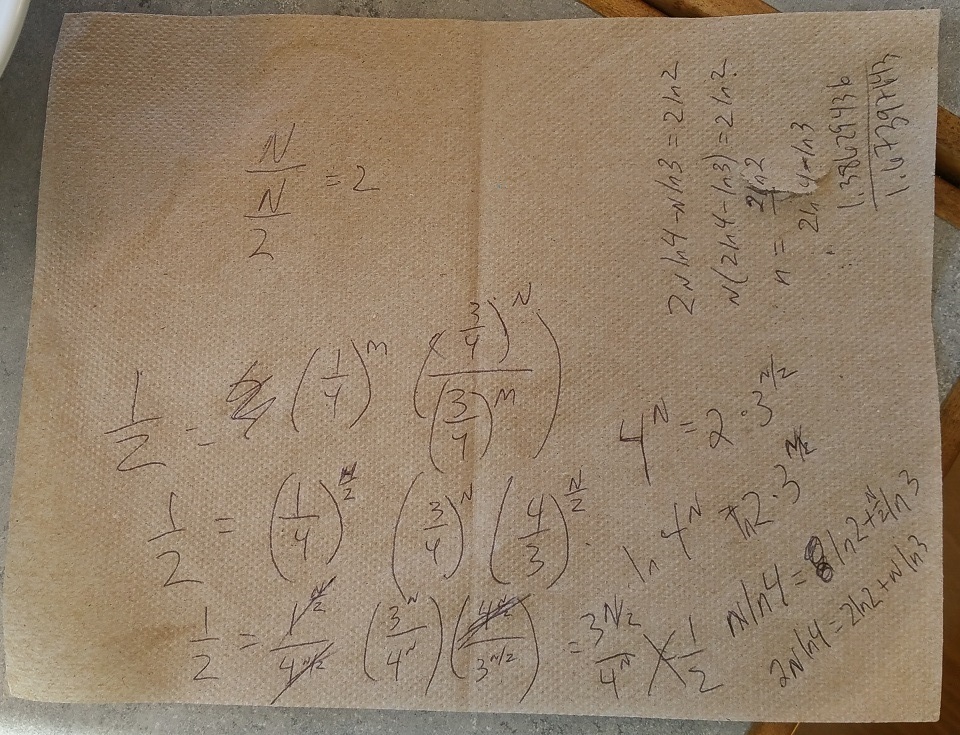 N/(N/2) = 2
1/2 = (1/4)^m ((3/4)^N/(3/4)^m)
1/2 = (1/4)^(N/2) (3/4)^N (4/3)^(N/2)
1/2 = 1^(N/2)/4^(N/2) (3^N/4^N) (4^(N/2)/3^(N/2)) = 3^(N/2)/4^N 1/2
4^N = 2 · 3^(N/2)
ln 4^N = ln 2 · 3^(N/2)
N ln 4 = ln 2 + N/2 ln 3
2N ln 4 = 2 ln 2 + N ln 3
2N ln 4 - N ln 3 = 2 ln 2
N(2 ln 4 - ln 3) = 2 ln 2
n = 2 ln 2/(2 ln 4 - ln 3)